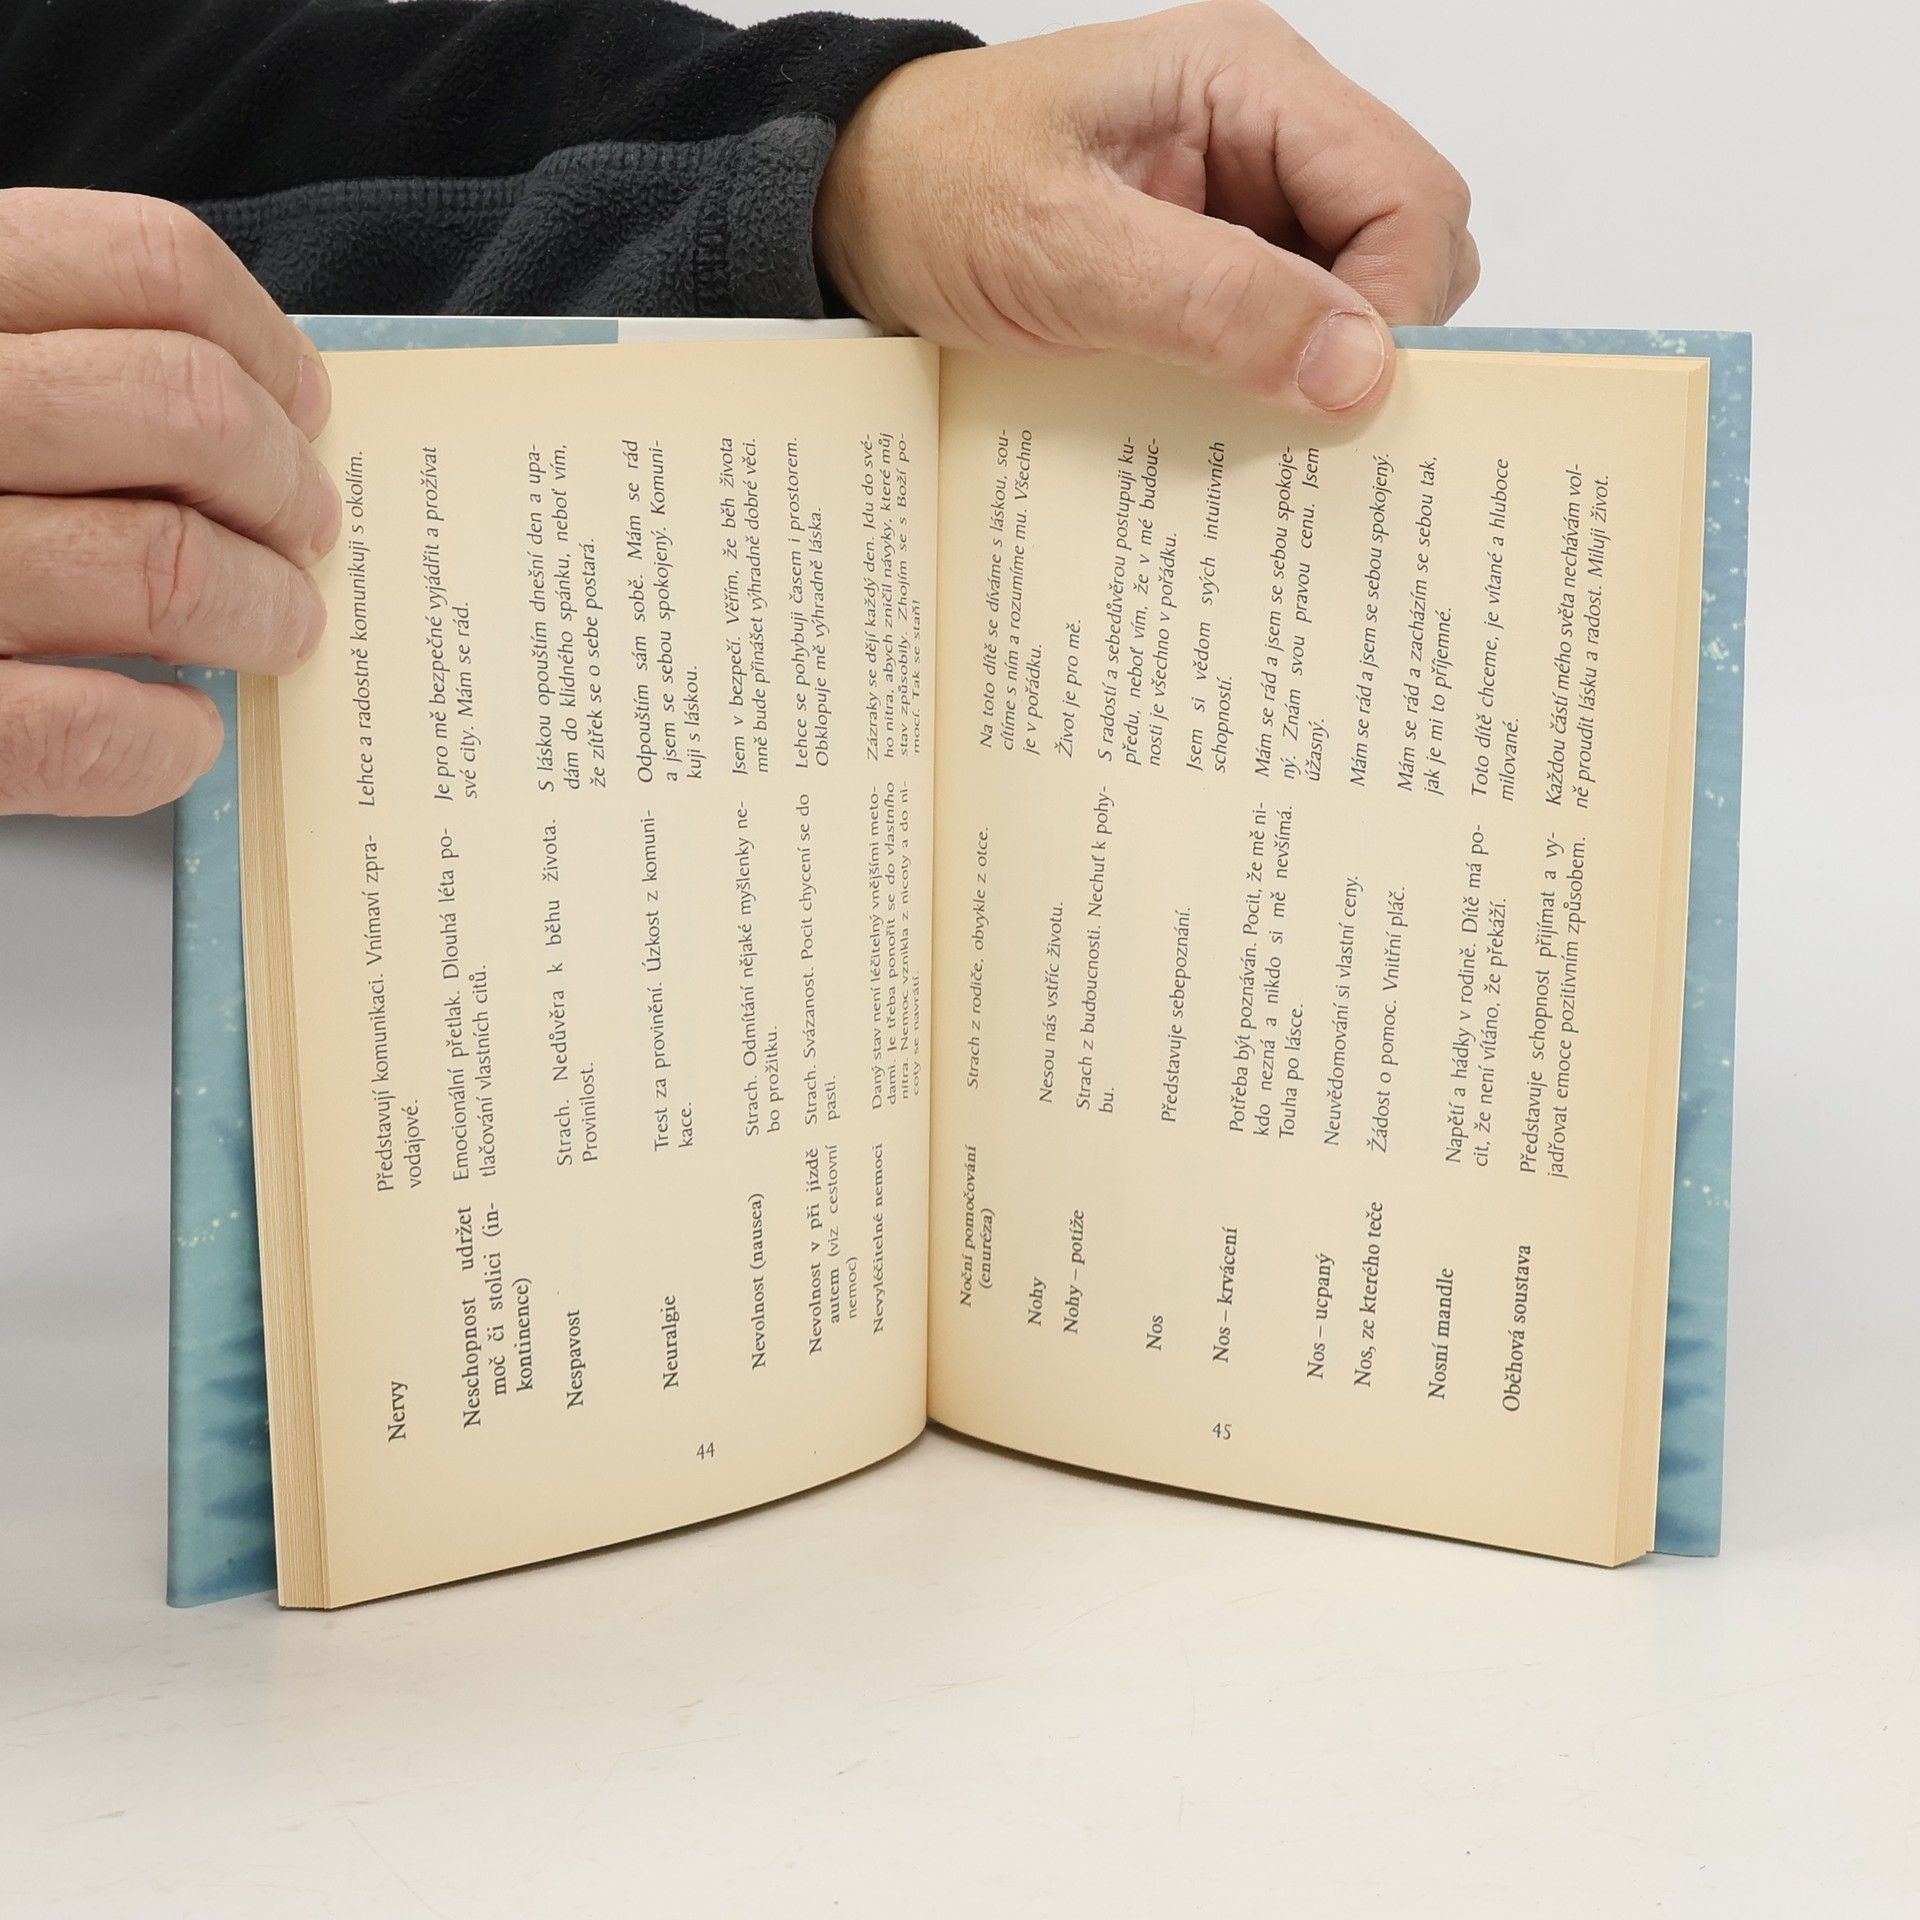 Nervy
Představují komunikaci. Vnímaví zpra-
vodajové.
Lehce a radostně komunikuji s okolím.
Neschopnost udržet
moč či stolici (in-
kontinence)
Emocionální přetlak. Dlouhá léta po-
tlačování vlastních citů.
Je pro mě bezpečné vyjádřit a prožívat
své city. Mám se rád.
Nespavost
Strach. Nedůvěra k běhu života.
Provinilost.
S láskou opouštím dnešní den a upa-
dám do klidného spánku, neboť vím,
že zítřek se o sebe postará.
Neuralgie
Trest za provinění. Úzkost z komuni-
kace.
Odpouštím sám sobě. Mám se rád
a jsem se sebou spokojený. Komuni-
kuji s láskou.
Nevolnost (nausea)
Strach. Odmítání nějaké myšlenky ne-
bo prožitku.
Jsem v bezpečí. Věřím, že běh života
mně bude přinášet výhradně dobré věci.
Nevolnost v při jízdě
autem (viz cestovní
nemoc)
Strach. Svázanost. Pocit chycení se do
pasti.
Lehce se pohybuji časem i prostorem.
Obklopuje mě výhradně láska.
Nevyléčitelné nemoci
Daný stav není léčitelný vnějšími meto-
dami. Je třeba ponořit se do vlastního
nitra. Nemoc vznikla z nicoty a do ni-
coty se navrátí.
Zázraky se dějí každý den. Jdu do své-
ho nitra, abych zničil návyky, které můj
stav způsobily. Zhojím se s Boží po-
mocí. Tak se staň!
44
Noční pomočování
(enuréza)
Strach z rodiče, obvykle z otce.
Na toto dítě se díváme s láskou, sou-
cítíme s ním a rozumíme mu. Všechno
je v pořádku.
Nohy
Nesou nás vstříc životu.
Život je pro mě.
Nohy – potíže
Strach z budoucnosti. Nechuť k pohy-
bu.
S radostí a sebedůvěrou postupuji ku-
předu, neboť vím, že v mé budouc-
nosti je všechno v pořádku.
Nos
Představuje sebepoznání.
Jsem si vědom svých intuitivních
schopností.
Nos – krvácení
Potřeba být poznáván. Pocit, že mě ni-
kdo nezná a nikdo si mě nevšímá.
Touha po lásce.
Mám se rád a jsem se sebou spokoje-
ný. Znám svou pravou cenu. Jsem
úžasný.
Nos – ucpaný
Neuvědomování si vlastní ceny.
Mám se rád a jsem se sebou spokojený.
Nos, ze kterého teče
Žádost o pomoc. Vnitřní pláč.
Mám se rád a zacházím se sebou tak,
jak je mi to příjemné.
Nosní mandle
Napětí a hádky v rodině. Dítě má po-
cit, že není vítáno, že překáží.
Toto dítě chceme, je vítané a hluboce
milované.
Oběhová soustava
Představuje schopnost přijímat a vy-
jadřovat emoce pozitivním způsobem.
Každou částí mého světa nechávám vol-
ně proudit lásku a radost. Miluji život.
45